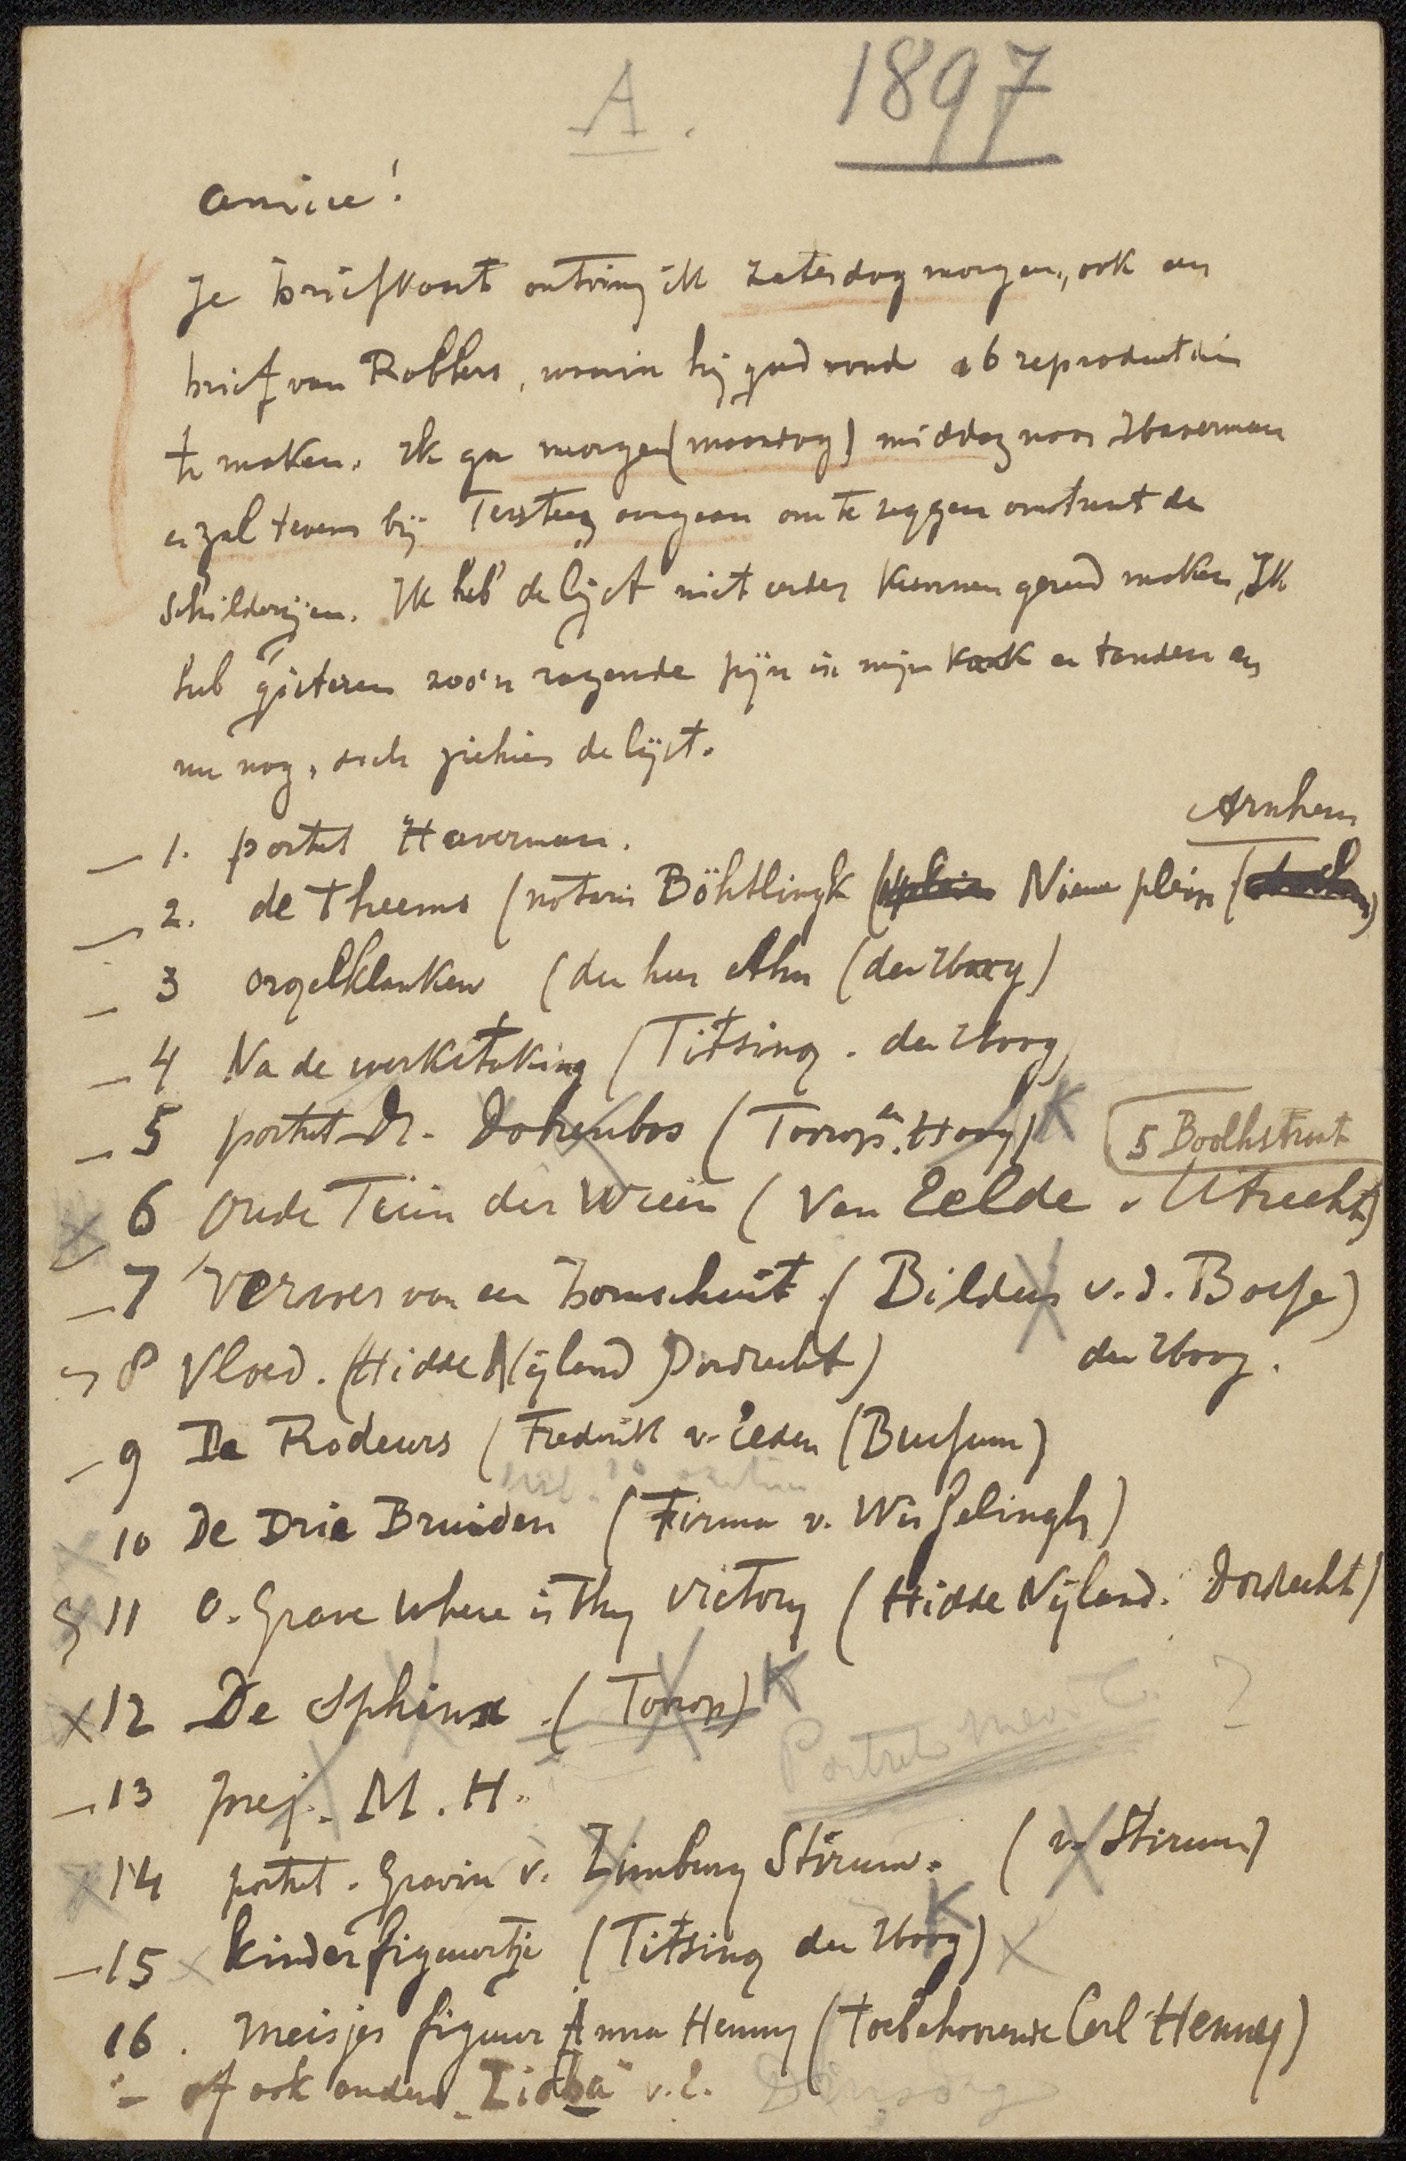 A. 1897
Amice!
Je briefkaart ontving ik zaterdag morgen, ook een
brief van Robbers, waarin hij goed vond 26 reproductiën
te maken. Ik ga morgen (maandag) middag naar Haverman
en zal tevens bij Tersteeg aangaan om te zeggen omtrent de
schilderijen. Ik heb de lijst niet eerder kunnen gereed maken, Ik
heb gisteren zoo'n razende pijn in mijn kaak en tanden en
nu nog, doch ziehier de lijst.
1. portret Haverman.
Arnhem
2. de Theems (notaris Böhtlingk Nieuwe plein
3 Orgelklanken (den heer Ahn (den Haag)
4 Na de werkstaking (Titsing. den Haag
5 portret Dr. Dokenbos (Toorop. den Haag) K
5 Boothstraat
6 Oude Tuin der Weeën (Van Eelde. Utrecht)
7 Verwer van een bomschuit. (Bilders v. d. Bosse)
den Haag.
8 Vloed. (Hidde Nijland Dordrecht)
9 De Rodeurs (Frederik v. Eeden (Bussum)
10 De Drie Bruiden (Firma v. Wisselingh)
11 O. Grave where is thy Victory (Hidde Nijland. Dordrecht)
12 De Sphinx. (Toorop) K
Portret ?
13 mej. M. H.
14 portret. Gravin v. Limburg Stirum. (v. Stirum)
15 Kinderfiguurtje (Titsing den Haag) K
16. Meisjes figuur Anna Henny (toebehoorende Carl Henny)
of ook anders